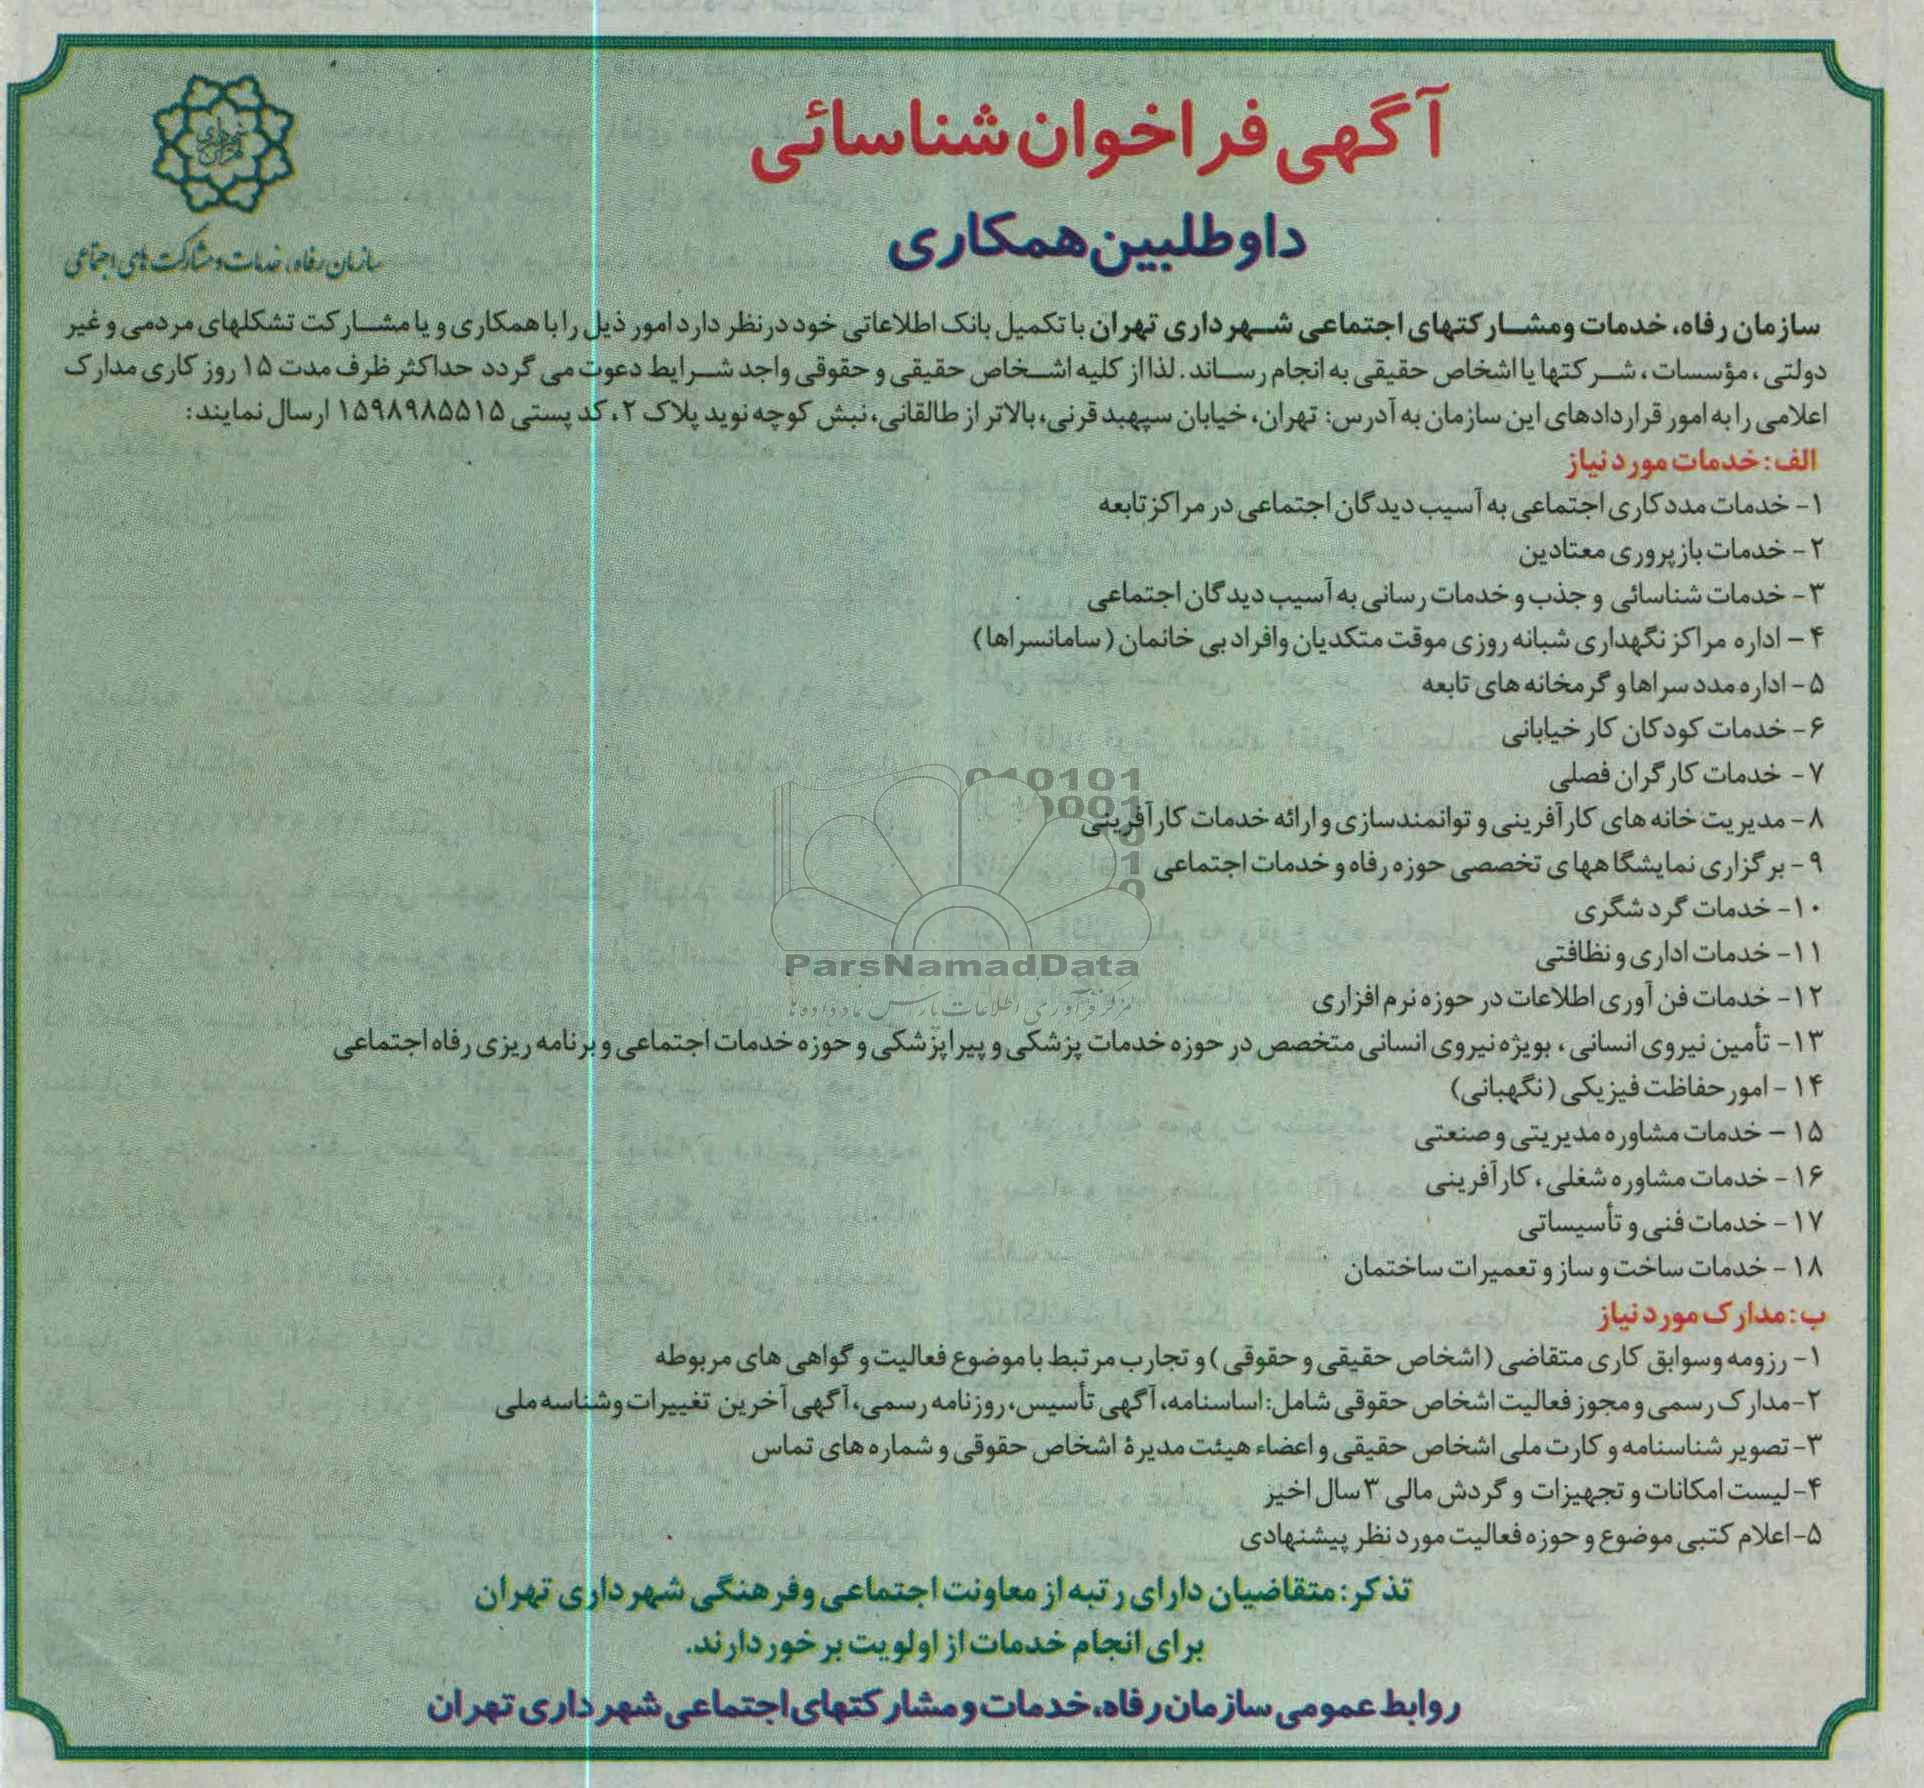 آگهی فراخوان شناسائی
داوطلبین همکاری
شهرداری تهران
سازمان رفاه، خدمات و مشارکت های اجتماعی
سازمان رفاه، خدمات ومشارکتهای اجتماعی شهرداری تهران با تکمیل بانک اطلاعاتی خود در نظر دارد امور ذیل را با همکاری و یا مشارکت تشکلهای مردمی و غیر
دولتی، مؤسسات، شرکتها یا اشخاص حقیقی به انجام رساند. لذا از کلیه اشخاص حقیقی و حقوقی واجد شرایط دعوت می گردد حداکثر ظرف مدت ۱۵ روز کاری مدارک
اعلامی را به امور قراردادهای این سازمان به آدرس: تهران، خیابان سپهبد قرنی، بالاتر از طالقانی، نبش کوچه نوید پلاک ۲، کد پستی ۱۵۹۸۹۸۵۵۱۵ ارسال نمایند:
الف: خدمات مورد نیاز
۱- خدمات مددکاری اجتماعی به آسیب دیدگان اجتماعی در مراکز تابعه
۲- خدمات بازپروری معتادین
۳- خدمات شناسائی و جذب و خدمات رسانی به آسیب دیدگان اجتماعی
۴- اداره مراکز نگهداری شبانه روزی موقت متکدیان وافراد بی خانمان (سامانسراها)
۵- اداره مدد سراها و گرمخانه های تابعه
۶- خدمات کودکان کار خیابانی
۷- خدمات کارگران فصلی
۸- مدیریت خانه های کارآفرینی و توانمندسازی و ارائه خدمات کارآفرینی
۹- برگزاری نمایشگاههای تخصصی حوزه رفاه و خدمات اجتماعی
۱۰- خدمات گردشگری
۱۱- خدمات اداری و نظافتی
۱۲- خدمات فن آوری اطلاعات در حوزه نرم افزاری
۱۳- تأمین نیروی انسانی، بویژه نیروی انسانی متخصص در حوزه خدمات پزشکی و پیراپزشکی و حوزه خدمات اجتماعی و برنامه ریزی رفاه اجتماعی
۱۴- امور حفاظت فیزیکی (نگهبانی)
۱۵- خدمات مشاوره مدیریتی و صنعتی
۱۶- خدمات مشاوره شغلی، کارآفرینی
۱۷- خدمات فنی و تأسیساتی
۱۸- خدمات ساخت و ساز و تعمیرات ساختمان
ب: مدارک مورد نیاز
۱- رزومه وسوابق کاری متقاضی (اشخاص حقیقی و حقوقی) و تجارب مرتبط با موضوع فعالیت و گواهی های مربوطه
۲-مدارک رسمی و مجوز فعالیت اشخاص حقوقی شامل: اساسنامه، آگهی تأسیس، روزنامه رسمی، آگهی آخرین تغییرات وشناسه ملی
۳- تصویر شناسنامه و کارت ملی اشخاص حقیقی و اعضاء هیئت مدیرۀ اشخاص حقوقی و شماره های تماس
۴-لیست امکانات و تجهیزات و گردش مالی ۳ سال اخیر
۵-اعلام کتبی موضوع و حوزه فعالیت مورد نظر پیشنهادی
تذکر: متقاضیان دارای رتبه از معاونت اجتماعی وفرهنگی شهرداری تهران
برای انجام خدمات از اولویت برخوردارند.
روابط عمومی سازمان رفاه، خدمات و مشارکتهای اجتماعی شهرداری تهران
ParsNamadData
مرکز فرآوری اطلاعات پارس نماد داده ها